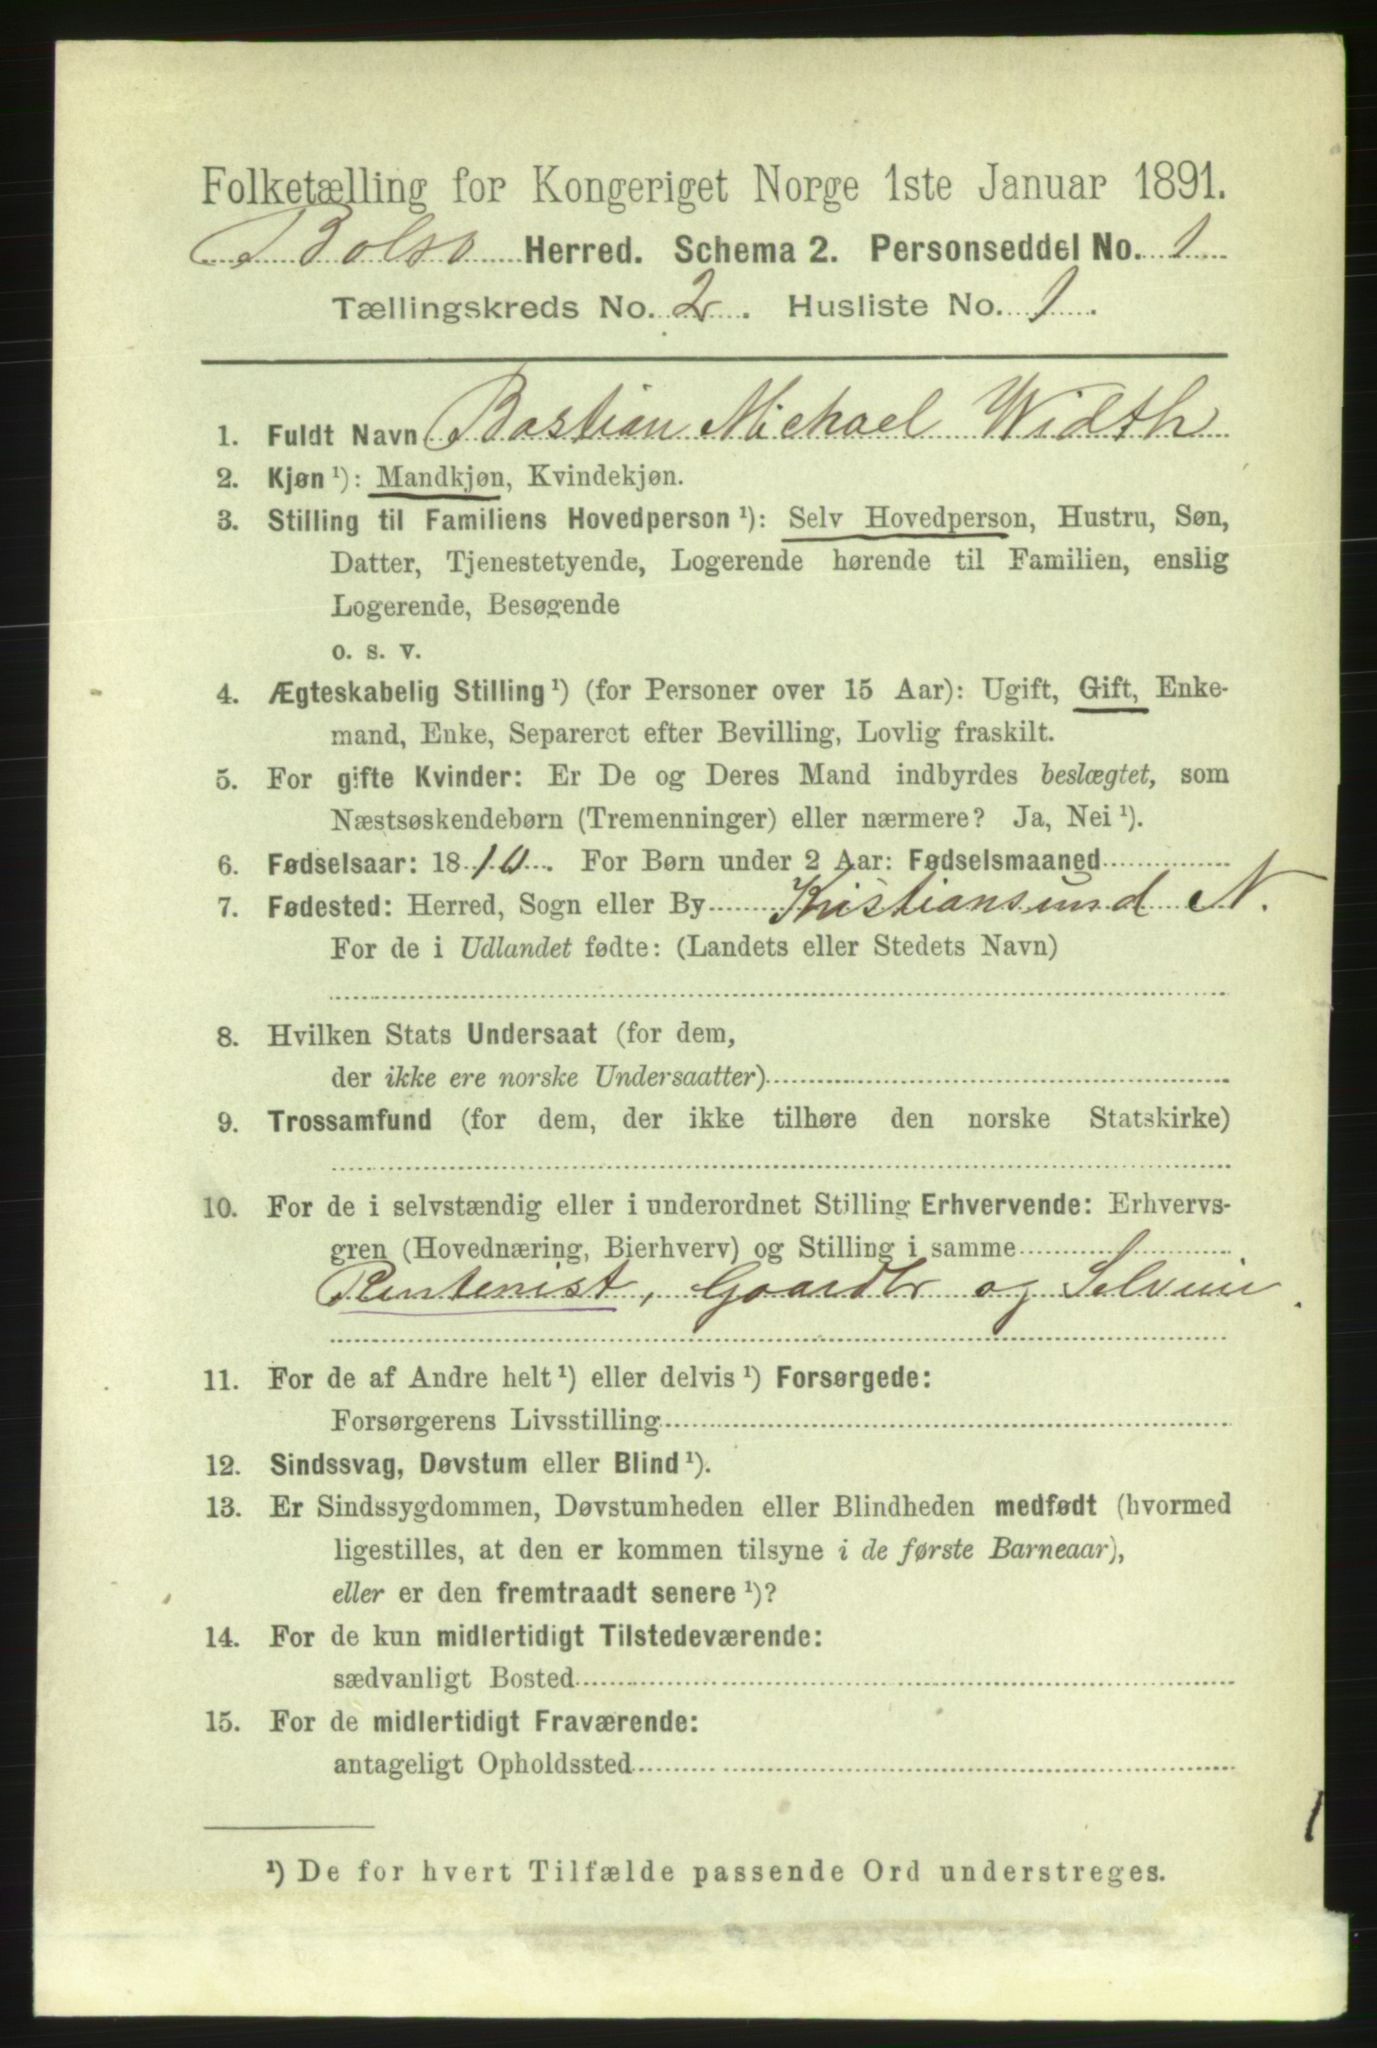 Folketælling for Kongeriget Norge 1ste Januar 1891.
Bolsø Herred. Schema 2. Personseddel No. 1
Tællingskreds No. 2. Husliste No. 1.
1. Fuldt Navn Bastian Michael Width
2. Kjøn ¹): Mandkjøn, Kvindekjøn.
3. Stilling til Familiens Hovedperson ¹): Selv Hovedperson, Hustru, Søn,
Datter, Tjenestetyende, Logerende hørende til Familien, enslig
Logerende, Besøgende
o. s. v.
4. Ægteskabelig Stilling ¹) (for Personer over 15 Aar): Ugift, Gift, Enke-
mand, Enke, Separeret efter Bevilling, Lovlig fraskilt.
5. For gifte Kvinder: Er De og Deres Mand indbyrdes beslægtet, som
Næstsøskendebørn (Tremenninger) eller nærmere? Ja, Nei ¹).
6. Fødselsaar: 1810. For Børn under 2 Aar: Fødselsmaaned
7. Fødested: Herred, Sogn eller By Kristiansund N.
For de i Udlandet fødte: (Landets eller Stedets Navn)
8. Hvilken Stats Undersaat (for dem,
der ikke ere norske Undersaatter)
9. Trossamfund (for dem, der ikke tilhøre den norske Statskirke)
10. For de i selvstændig eller i underordnet Stilling Erhvervende: Erhvervs-
gren (Hovednæring, Bierhverv) og Stilling i samme
Rentenist, Gaardbr og Selveier.
11. For de af Andre helt ¹) eller delvis ¹) Forsørgede:
Forsørgerens Livsstilling
12. Sindssvag, Døvstum eller Blind ¹).
13. Er Sindssygdommen, Døvstumheden eller Blindheden medfødt (hvormed
ligestilles, at den er kommen tilsyne i de første Barneaar),
eller er den fremtraadt senere ¹)?
14. For de kun midlertidigt Tilstedeværende:
sædvanligt Bosted
15. For de midlertidigt Fraværende:
antageligt Opholdssted
1
¹) De for hvert Tilfælde passende Ord understreges.